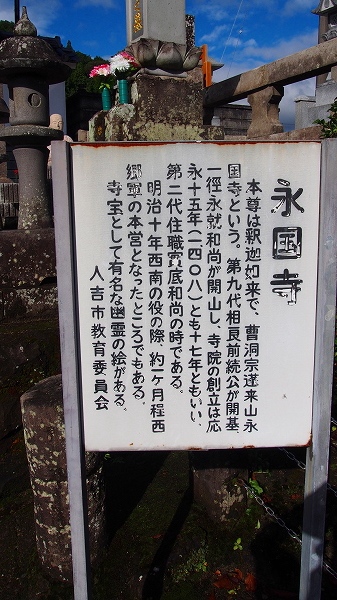 永国寺
本尊は釈迦如来で、曹洞宗蓬来山永
国寺という。第九代相良前続公が開基、
一径永就和尚が開山し、寺院の創立は応
永十五年(一四〇八)とも十七年ともいい、
第二代住職實底和尚の時である。
明治十年西南の役の際、約一ヶ月程西
郷軍の本営となったところでもある。
寺宝として有名な幽霊の絵がある。
人吉市教育委員会